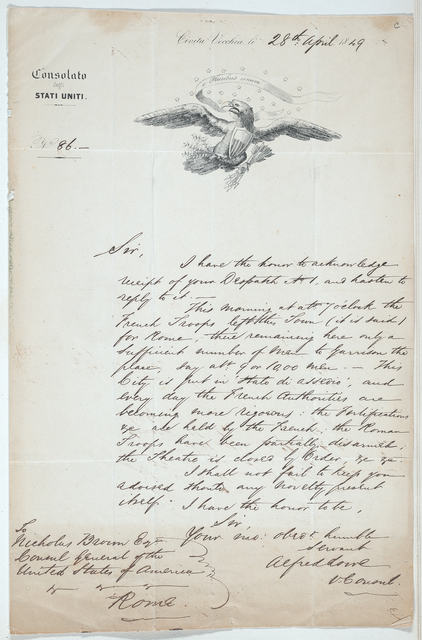 Civita Vecchia le 28th April 1849
Consolato
degli
STATI UNITI.
No. 86.—
E Pluribus unum
Sir,
I have the honor to acknowledge
receipt of your Despatch No 1, and hasten to
reply to it.—
This morning at abt 7 o'clock the
French Troops left this Town (it is said)
for Rome, there remaining here only a
sufficient number of Men to garrison the
place, say abt 9 or 1000 men.— This
City is put in Stato di assedio, and
every day the French Authorities are
becoming more rigorous: the Fortifications
&c are held by the French; the Roman
Troops have been partially disarmed,
the Theatre is closed by Order, &c &c.
I shall not fail to keep you
advised should any novelty present
itself. I have the honor to be,
Sir
Your mo: obedt humble
Servant
Alfred Lowe
V. Consul
To
Nicholas Brown Esqre
Consul General of the
United States of America
Rome.